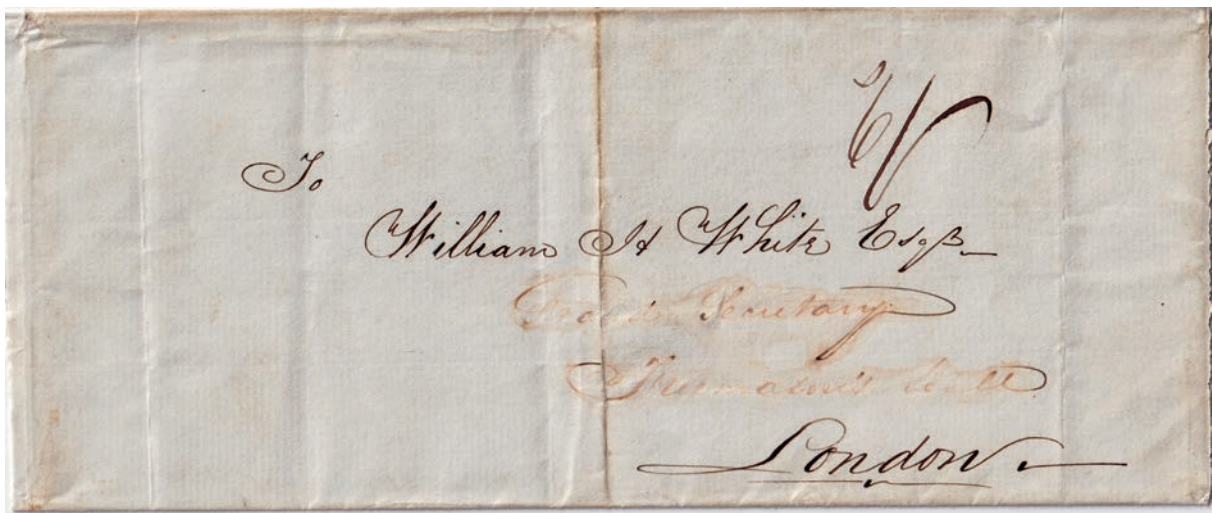 6/
To
William H White Esqr
Grand Secretary
Freemason's Hall
London.